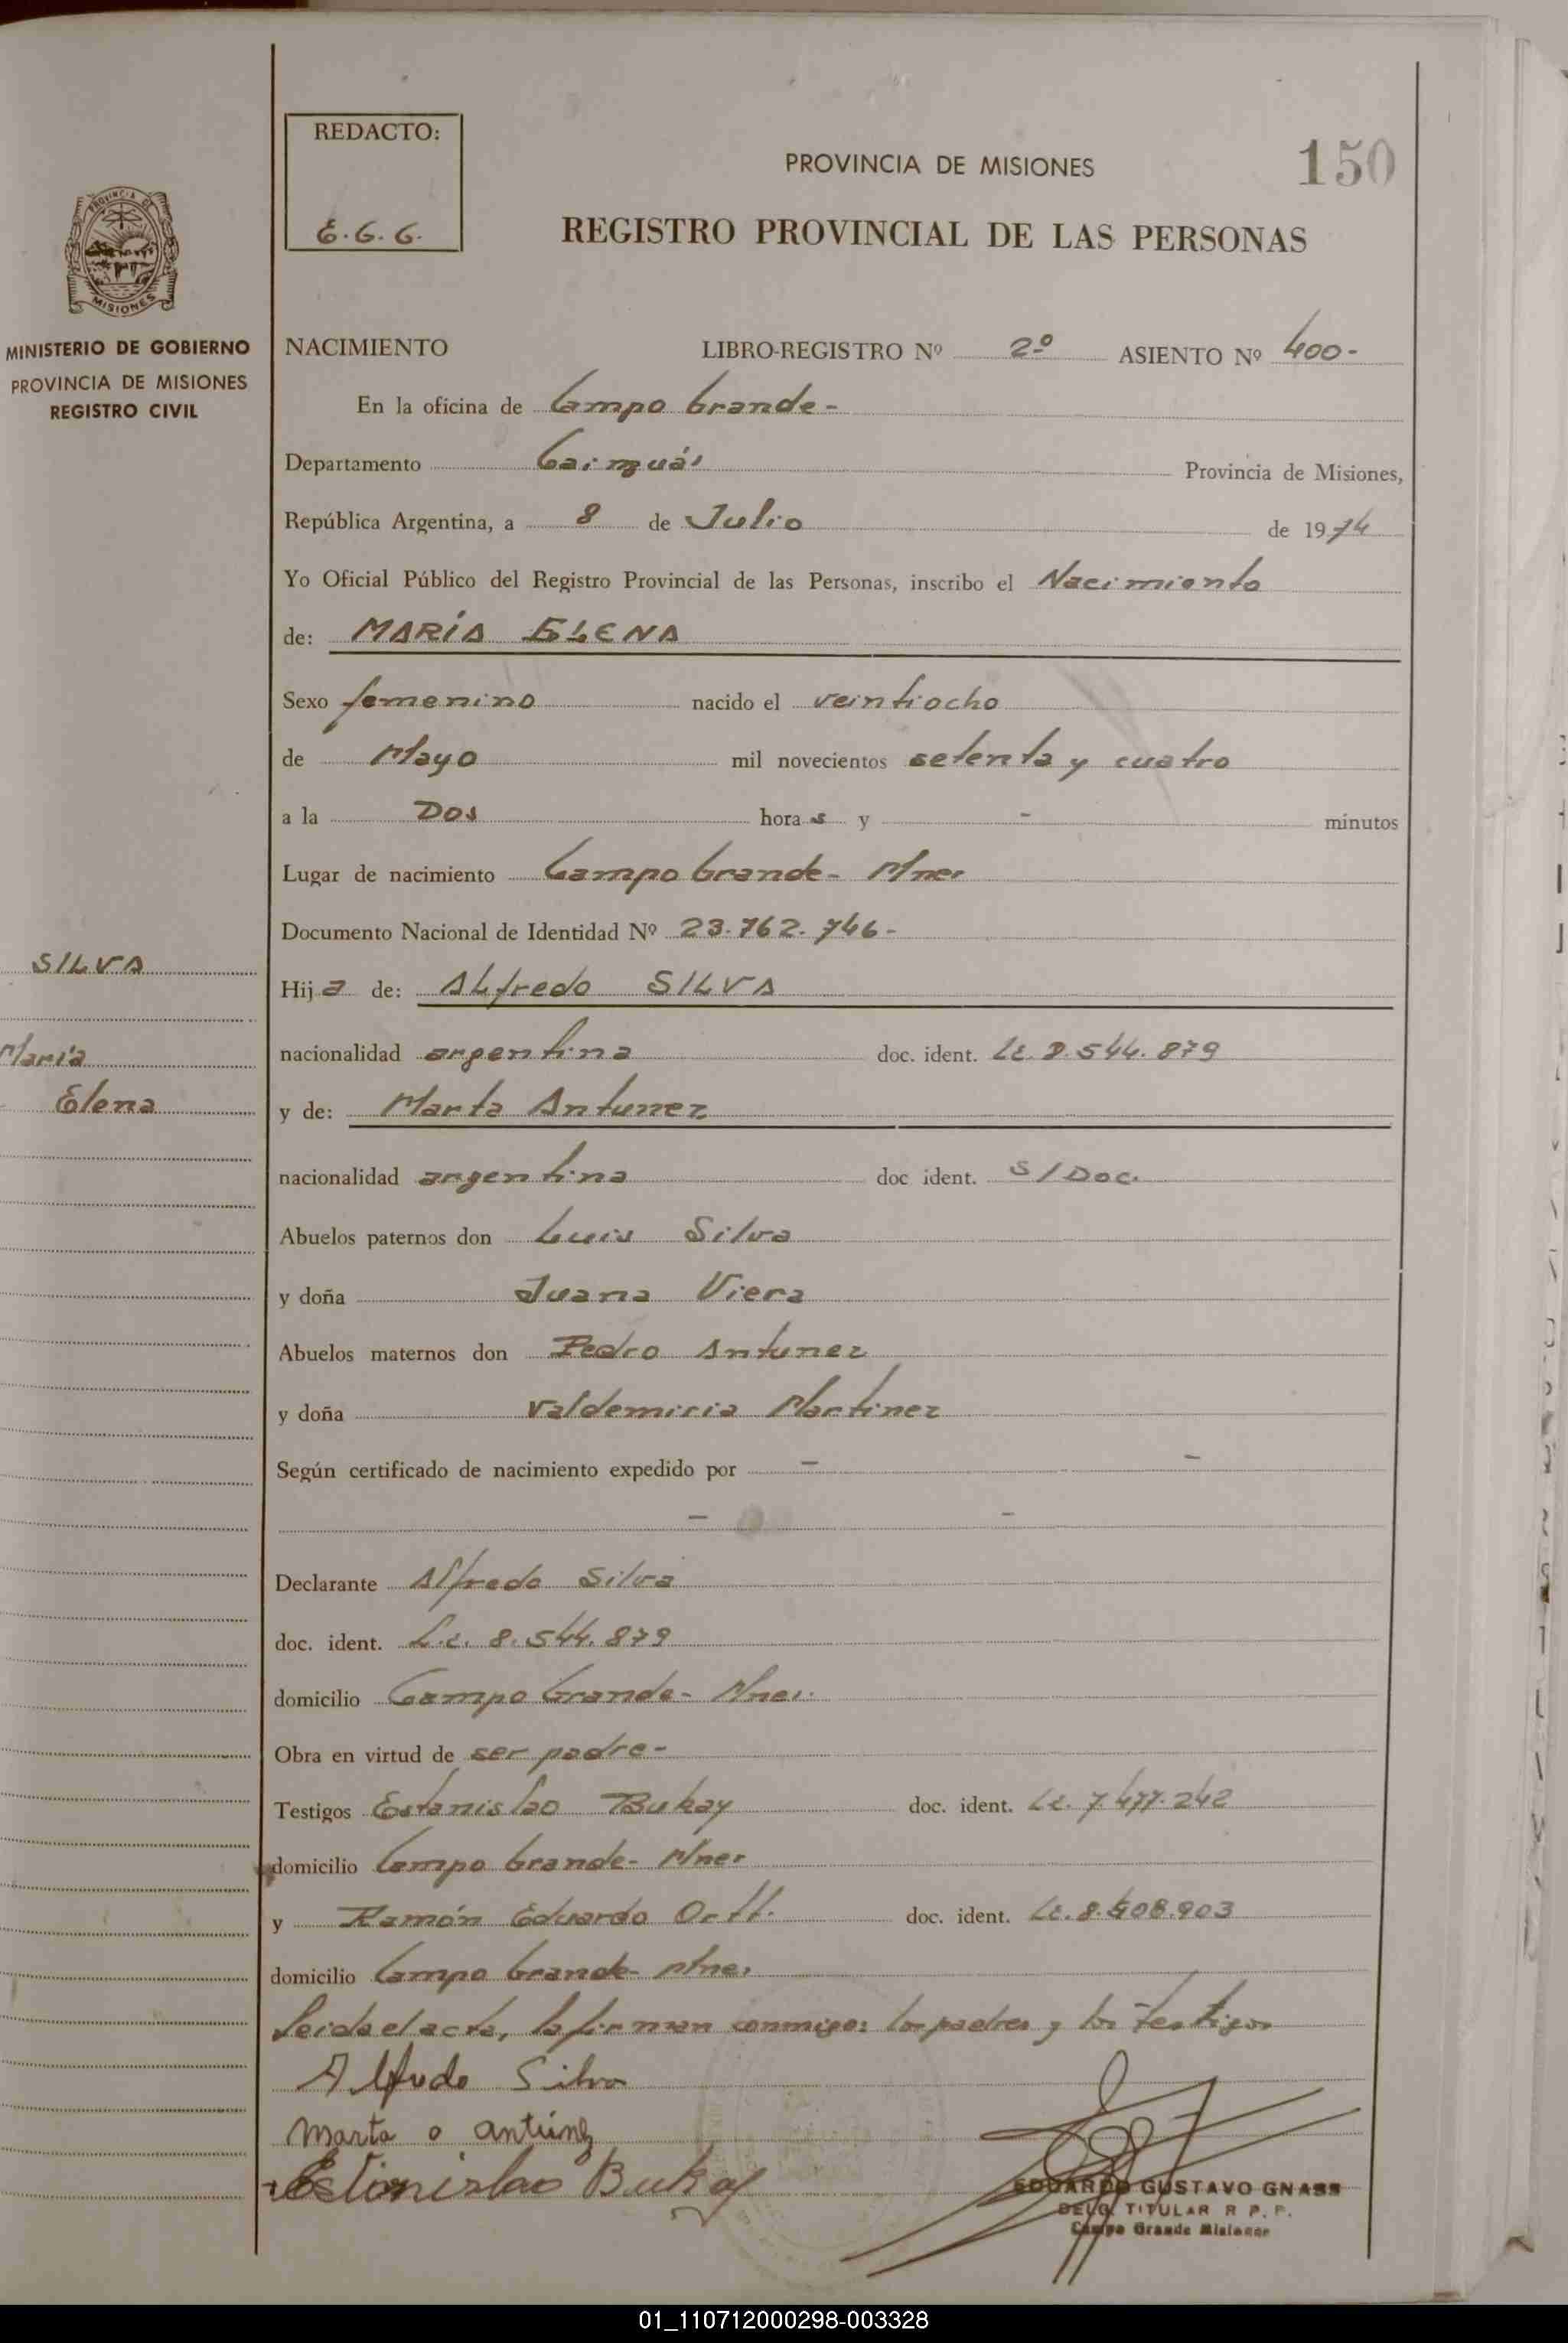 REDACTO:
E.G.G.
PROVINCIA DE MISIONES
150
REGISTRO PROVINCIAL DE LAS PERSONAS
PROVINCIA DE
MISIONES
MINISTERIO DE GOBIERNO
PROVINCIA DE MISIONES
REGISTRO CIVIL
NACIMIENTO LIBRO-REGISTRO Nº 2º ASIENTO Nº 400-
En la oficina de Campo Grande-
Departamento Cainguás Provincia de Misiones,
República Argentina, a 8 de Julio de 1974
Yo Oficial Público del Registro Provincial de las Personas, inscribo el Nacimiento
de: MARÍA ELENA
Sexo femenino nacido el veintiocho
de Mayo mil novecientos setenta y cuatro
a la Dos horas y - minutos
Lugar de nacimiento Campo Grande- Mnes
Documento Nacional de Identidad Nº 23.762.746-
SILVA
Hija de: ALfredo SILVA
María
nacionalidad argentina doc. ident. L.E. 8.544.879
Elena
y de: Marta Antunez
nacionalidad argentina doc ident. S/Doc.
Abuelos paternos don Luis Silva
y doña Juana Viera
Abuelos maternos don Pedro Antunez
y doña Valdemiria Martinez
Según certificado de nacimiento expedido por - -
- -
Declarante Alfredo Silva
doc. ident. L.E. 8.544.879
domicilio Campo Grande- Mnes.
Obra en virtud de ser padre-
Testigos Estanislao Bukay doc. ident. L.E. 7.477.242
domicilio Campo Grande- Mnes
y Ramón Eduardo Ortt. doc. ident. L.E. 8.408.903
domicilio Campo Grande- Mnes
Leida el acta, la firman conmigo: los padres y los testigos
Alfredo Silva
Marta o antúnez
Estanislao Bukay
EDUARDO GUSTAVO GNASS
DELG. TITULAR R P. P.
Campo Grande Misiones
01_110712000298-003328